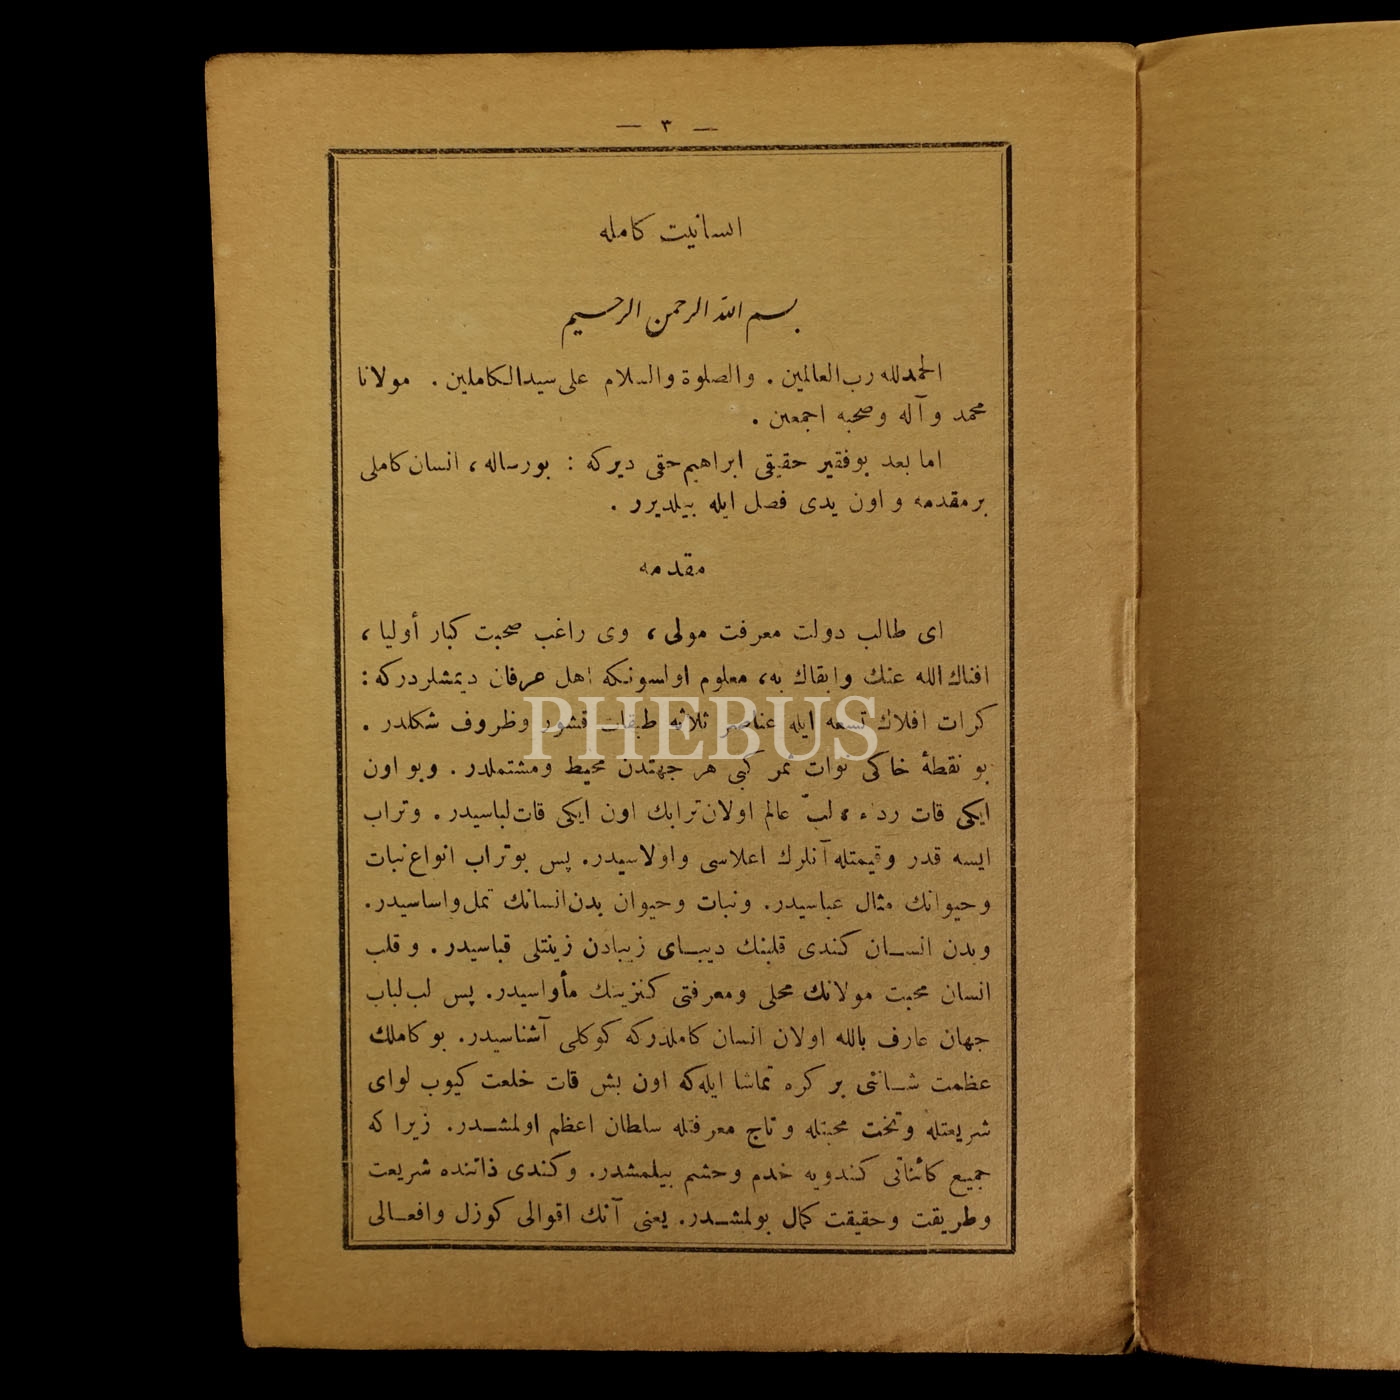 — ٣ —
انسانيت كامله
بسم الله الرحمن الرحيم
الحمدلله رب العالمين . والصلوة والسلام على سيدالكاملين . مولانا
محمد وآله وصحبه اجمعين .
اما بعد بوفقير حقيقى ابراهيم حقى ديركه : بورساله، انسان كاملى
برمقدمه و اون يدى فصل ايله بيلديرر .
مقدمه
اى طالب دولت معرفت مولى، وى راغب صحبت كبار أوليا،
افناك الله عنك وابقاك به، معلوم اولسونكه اهل عرفان ديمشلردركه :
كرات افلاك تسعه ايله عناصر ثلاثه طبقات قشور وظروف شكلدر .
PHEBUS
بو نقطهٔ خاكى نوات ثمر كبى هر جهتدن محيط ومشتملدر . وبو اون
ايكى قات رداء، لبّ عالم اولان ترابك اون ايكى قات لباسيدر . وتراب
ايسه قدر وقيمتله آنلرك اعلاسى واولاسيدر. پس بوتراب انواع نبات
وحيوانك مثال عباسيدر. ونبات وحيوان بدن انسانك تمل واساسيدر.
وبدن انسان كندى قلبنك ديباى زيبادن زينتلى قباسيدر . وقلب
انسان محبت مولانك محلى ومعرفتى كنزينك مأواسيدر. پس لب لباب
جهان عارف بالله اولان انسان كاملدركه كوكلى آشناسيدر. بو كاملك
عظمت شاننى بر كره تماشا ايله كه اون بش قات خلعت كيوب لواى
شريعتله وتخت محبتله وتاج معرفتله سلطان اعظم اولمشدر. زيرا كه
جميع كائناتى كندويه خدم وحشم بيلمشدر. وكندى ذاتنده شريعت
وطريقت وحقيقت كمال بولمشدر. يعنى آنك اقوالى كوزل وافعالى